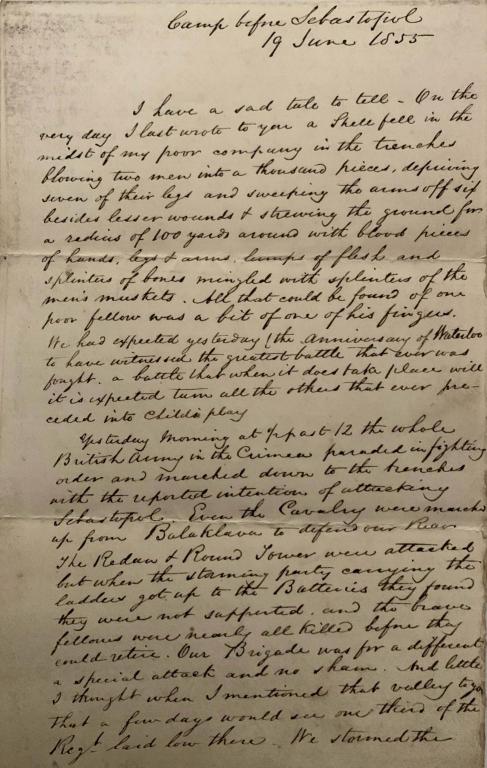 Camp before Sebastopol
19 June 1855
I have a sad tale to tell - On the
very day I last wrote to you a Shell fell in the
midst of my poor company in the trenches
blowing two men into a thousand pieces, depriving
seven of their legs and sweeping the arms off six
besides lesser wounds & strewing the ground for
a redius of 100 yards around with blood pieces
of hands, legs & arms, lumps of flesh and
splinters of bones mingled with splinters of the
men's muskets. All that could be found of one
poor fellow was a bit of one of his fingers.
We had expected yesterday (the Anniversary of Waterloo
to have witnessed the greatest battle that ever was
fought. a battle that when it does take place will
it is expected turn all the others that ever pre-
ceded into child's play
Yesterday Morning at ½ past 12 the whole
British Army in the Crimea paraded in fighting
order and marched down to the trenches
with the reported intention of attacking
Sebastopol. Even the Cavalry were marched
up from Balaklava to defend our Rear
The Redan & Round Tower were attacked
but when the storming party carrying the
ladders got up to the Batteries they found
they were not supported. and the brave
fellows were nearly all killed before they
could retire. Our Brigade was for a different
a special attack and no sham. And little
I thought when I mentioned that valley to you
that a few days would see one third of the
Regt. laid low there. We stormed the